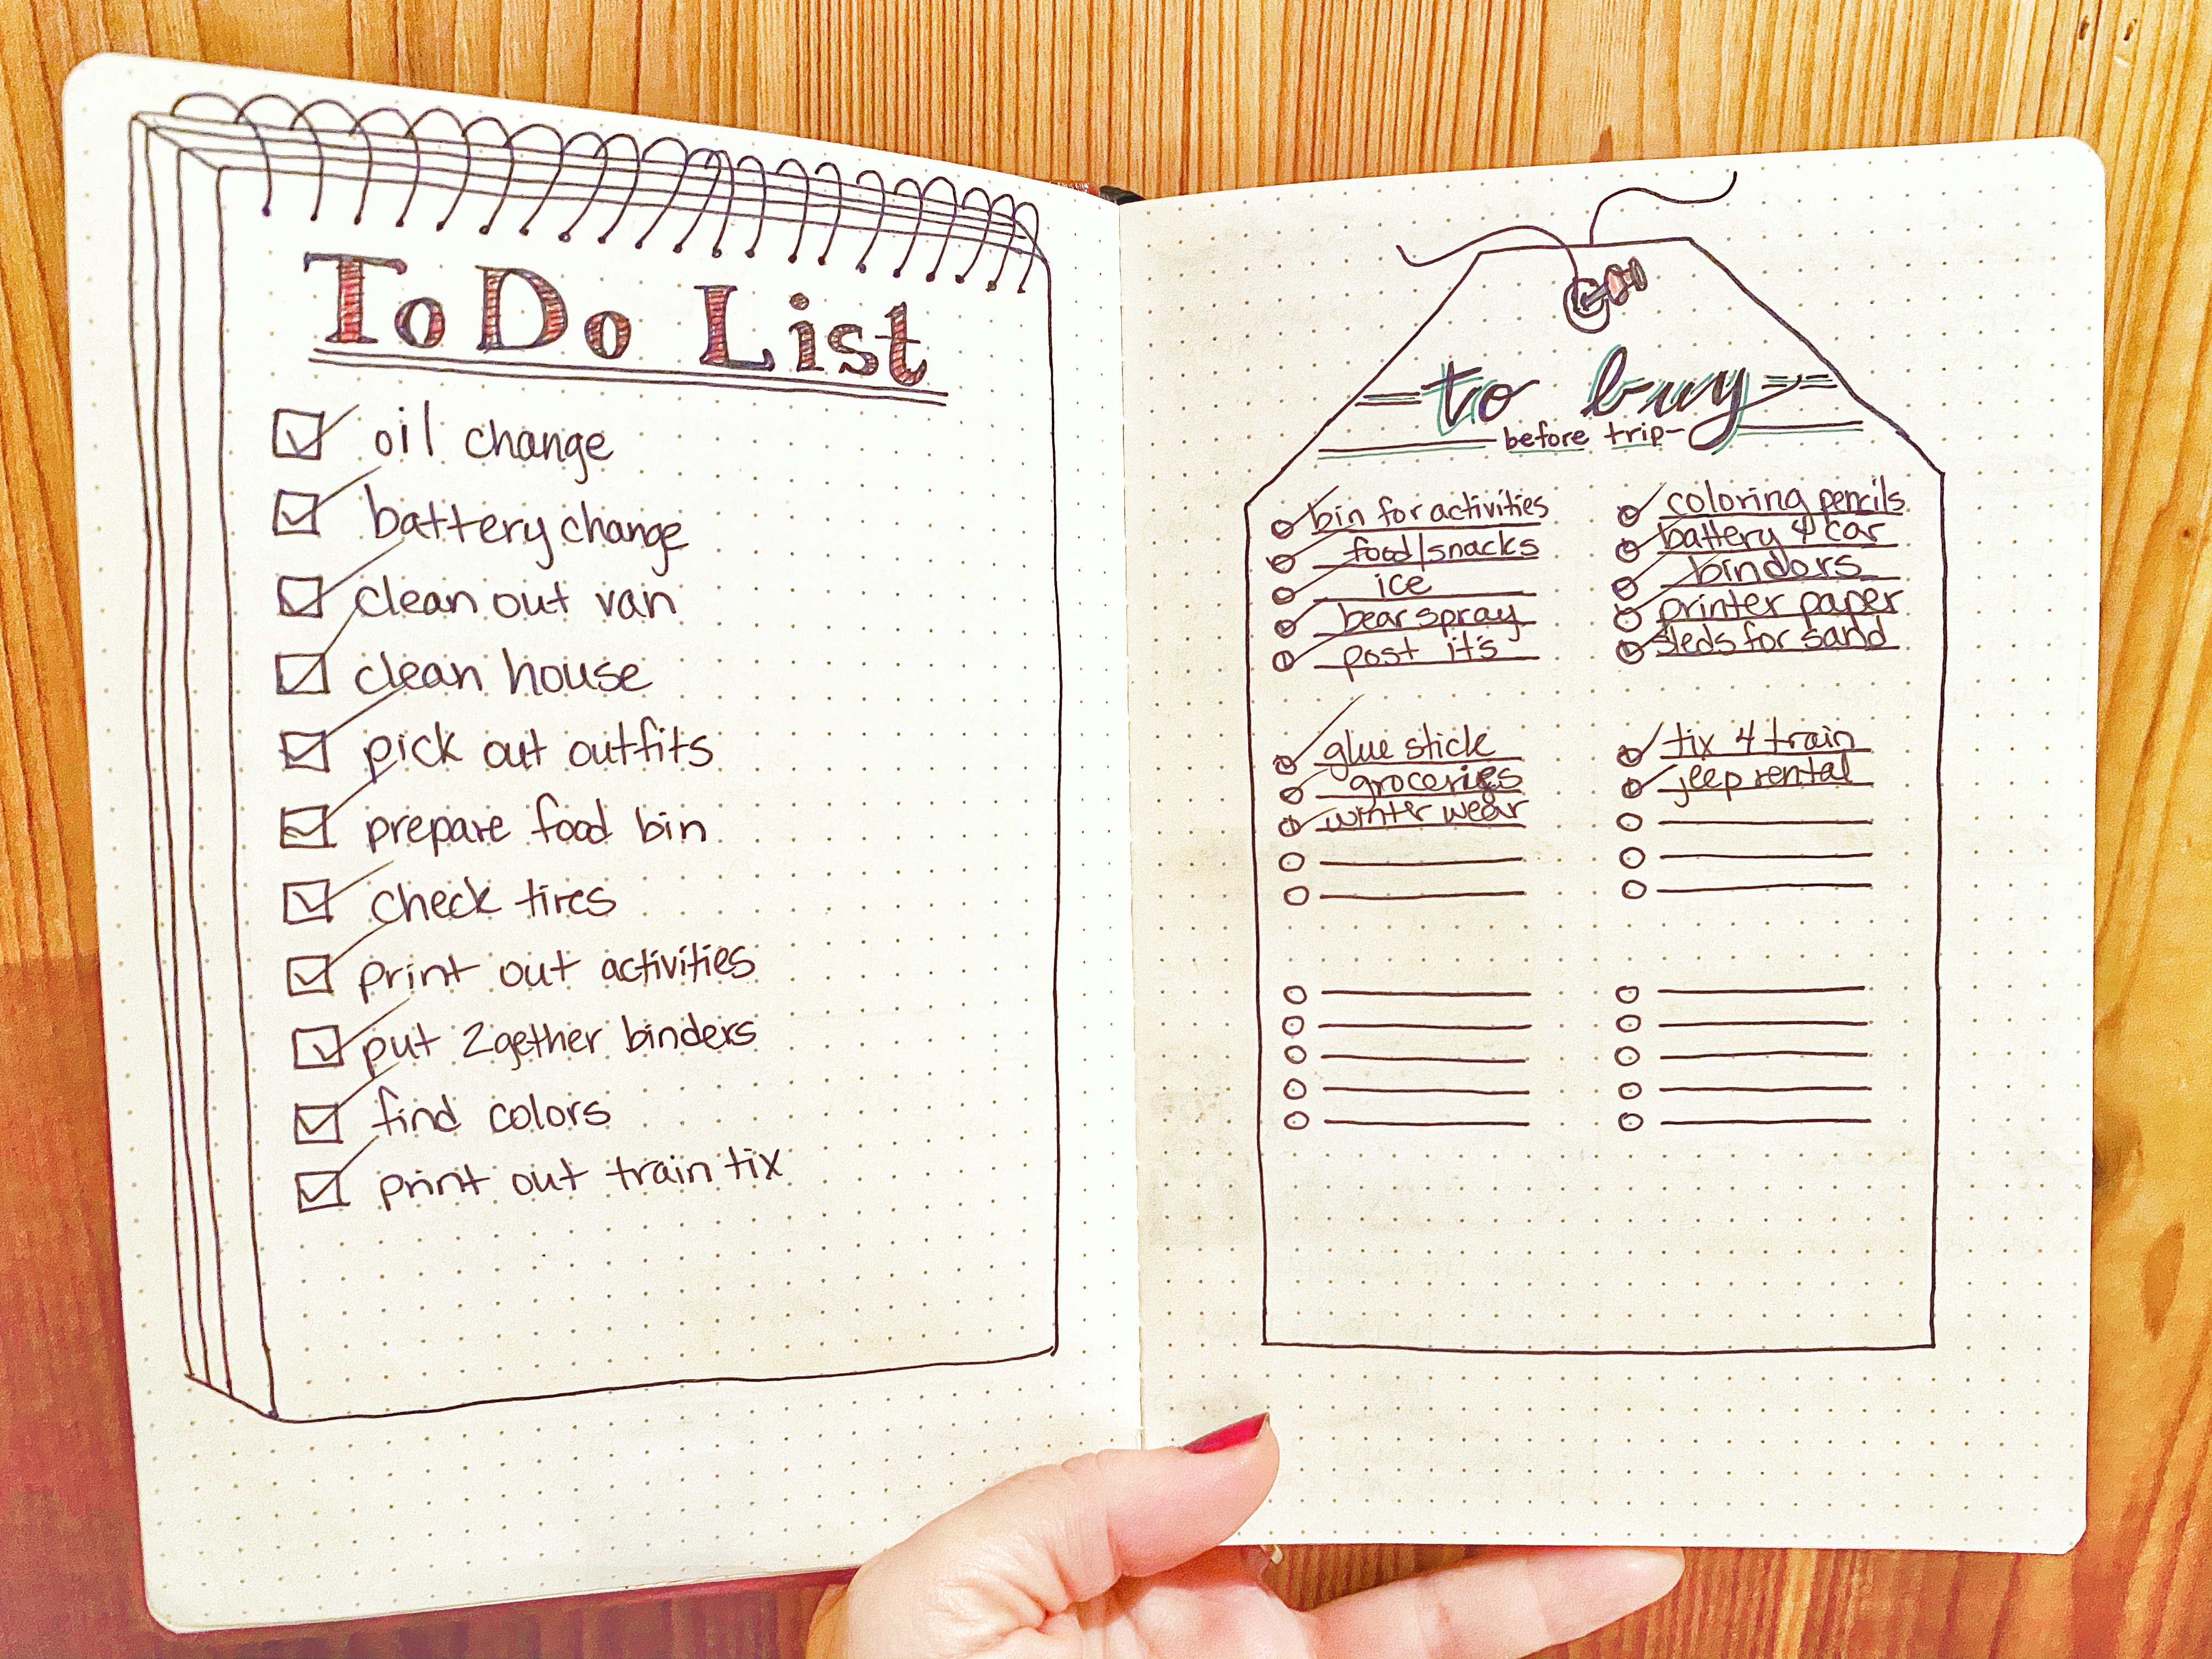 To Do List
oil change
battery change
clean out van
clean house
pick out outfits
prepare food bin
check tires
print out activities
put 2gether binders
find colors
print out train tix
to buy
before trip
bin for activities
food/snacks
ice
bear spray
post it's
coloring pencils
battery 4 car
binders
printer paper
sleds for sand
glue stick
groceries
winter wear
tix 4 train
jeep rental